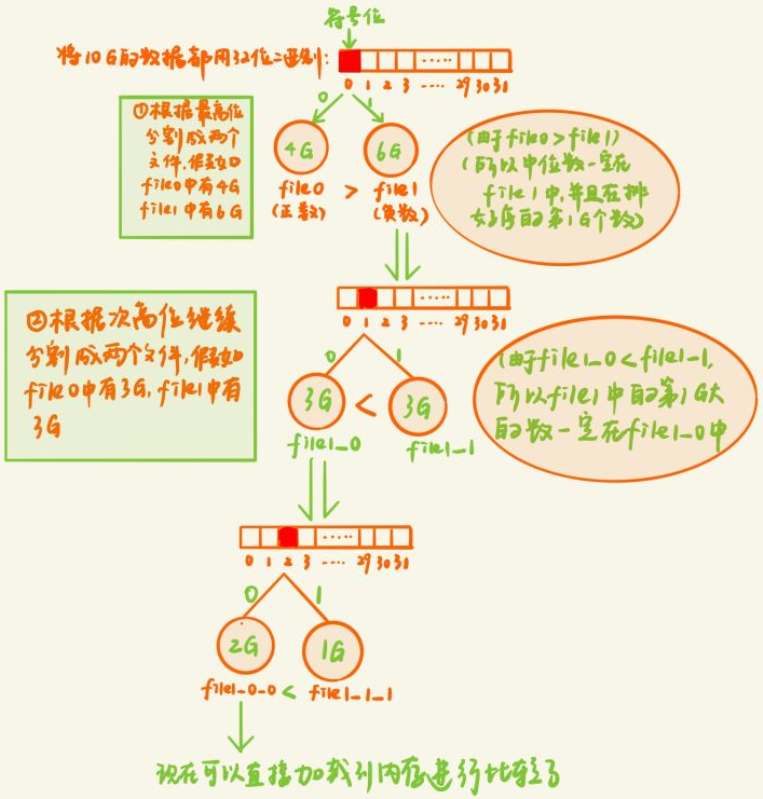 符号位
将10G的数据都用32位二进制:
0 1 2 3 ---- 29 30 31
0 1
①根据最高位
分割成两个
文件,假如
file0中有4G
file1中有6G
4G 6G
file0 > file1
(正数) (负数)
(由于file0>file1)
(所以中位数一定在
file1中,并且在排
好序的第1G个数)
0 1 2 3 ---- 29 30 31
②根据次高位继续
分割成两个文件,假如
file0中有3G,file1中有
3G
0 1
3G < 3G
file1_0 file1_1
(由于file1_0<file1_1,
所以file1中的第1G大
的数一定在file1_0中
0 1 2 3 ---- 29 30 31
0 1
2G 1G
file1_0_0 < file1_1_1
现在可以直接加载到内存进行比较了